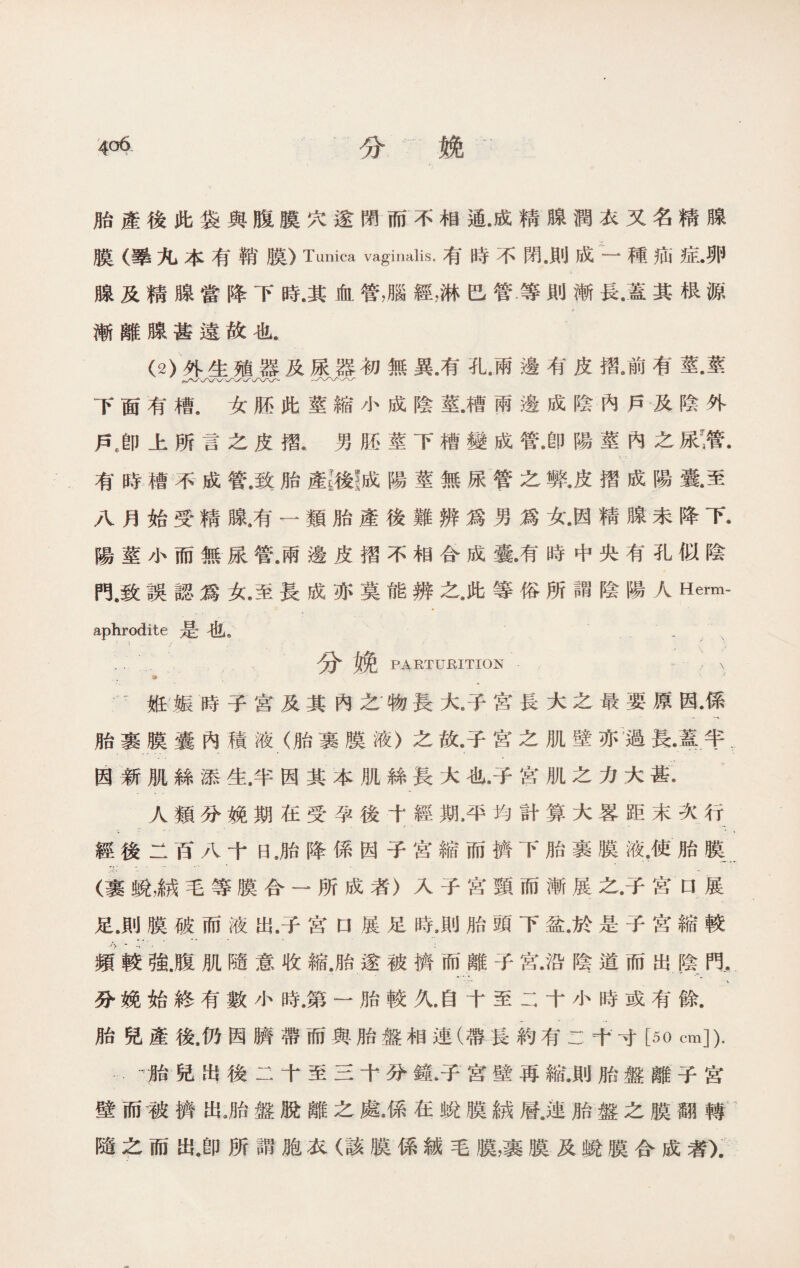 406	分娩
胎產後此袋與腹膜穴遂閉而不相通.成精腺潤衣又名精腺
膜(睪丸本有鞘膜) Tunica vaginalis. 有時不閉.則成一種疝症.卵
腺及精腺當降下時.其血管,腦經,淋巴管等則漸長.蓋其根源
漸離腺甚遠故也。
(2)外生殖器及尿器初無異.有孔.兩邊有皮摺.前有莖.莖
下面有槽。 女胚此莖縮小成陰莖.槽兩邊成陰內戶及陰外
戶.卽上所言之皮摺。 男胚莖下槽變成管.卽陽莖內之尿管.
有時槽不成管.致胎產後成陽莖無尿管之弊.皮摺成陽囊.至
八月始受精腺.有一類胎產後難辨爲男爲女.因精腺未降下.
陽莖小而無尿管.兩邊皮摺不相合成囊.有時中央有孔似陰
門.致誤認爲女.至長成亦莫能辨之.此等俗所謂陰陽人 Herm-
aphrodite 是也。
分娩 PARTURITION
姙娠時子宮及其內之物長大.子宮長大之最要原因.係
胎裹膜囊內積液(胎裹膜液)之故.子宮之肌壁亦過長.蓋半
因新肌絲添生.半因其本肌絲長大也.子宮肌之力大甚.
人類分娩期在受孕後十經期.平均計算大畧距末次行
經後二百八十日.胎降係因子宮縮而擠下胎裹膜液.使胎膜
(裹蛻,絨毛等膜合一所成者)入子宮頸而漸展之.子宮口展
足.則膜破而液出.子宮口展足時.則胎頭下盆.於是子宮縮較
頻較強.腹肌隨意收縮.胎遂被擠而離子宮.沿陰道而出陰門.
分娩始終有數小時.第一胎較久.自十至二十小時或有餘.
胎兒產後.仍因臍帶而與胎盤相連(帶長約有二十寸[50 cm]).
胎兒出後二十至三十分鐘.子宮壁再縮.則胎盤離子宮
壁而被擠出.胎盤脫離之處.係在蛻膜絨層.連胎盤之膜翻轉
隨之而出.卽所謂胞衣(該膜係絨毛膜,裹膜及蛻膜合成者).